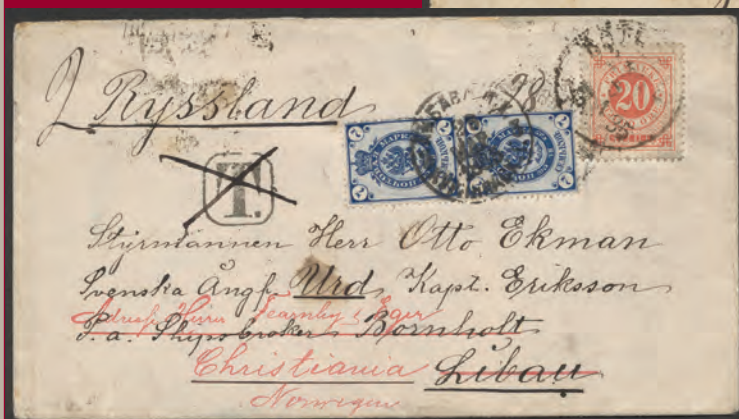 98
Ryssland
20
7 7
7 7
T.
Styrmannen Herr Otto Ekman
Svenska Ångf. Urd, Kapt. Eriksson
Fearnley & Eger
P. a. Shipsbroker Bornholt
Christiania Libau
Norwegen